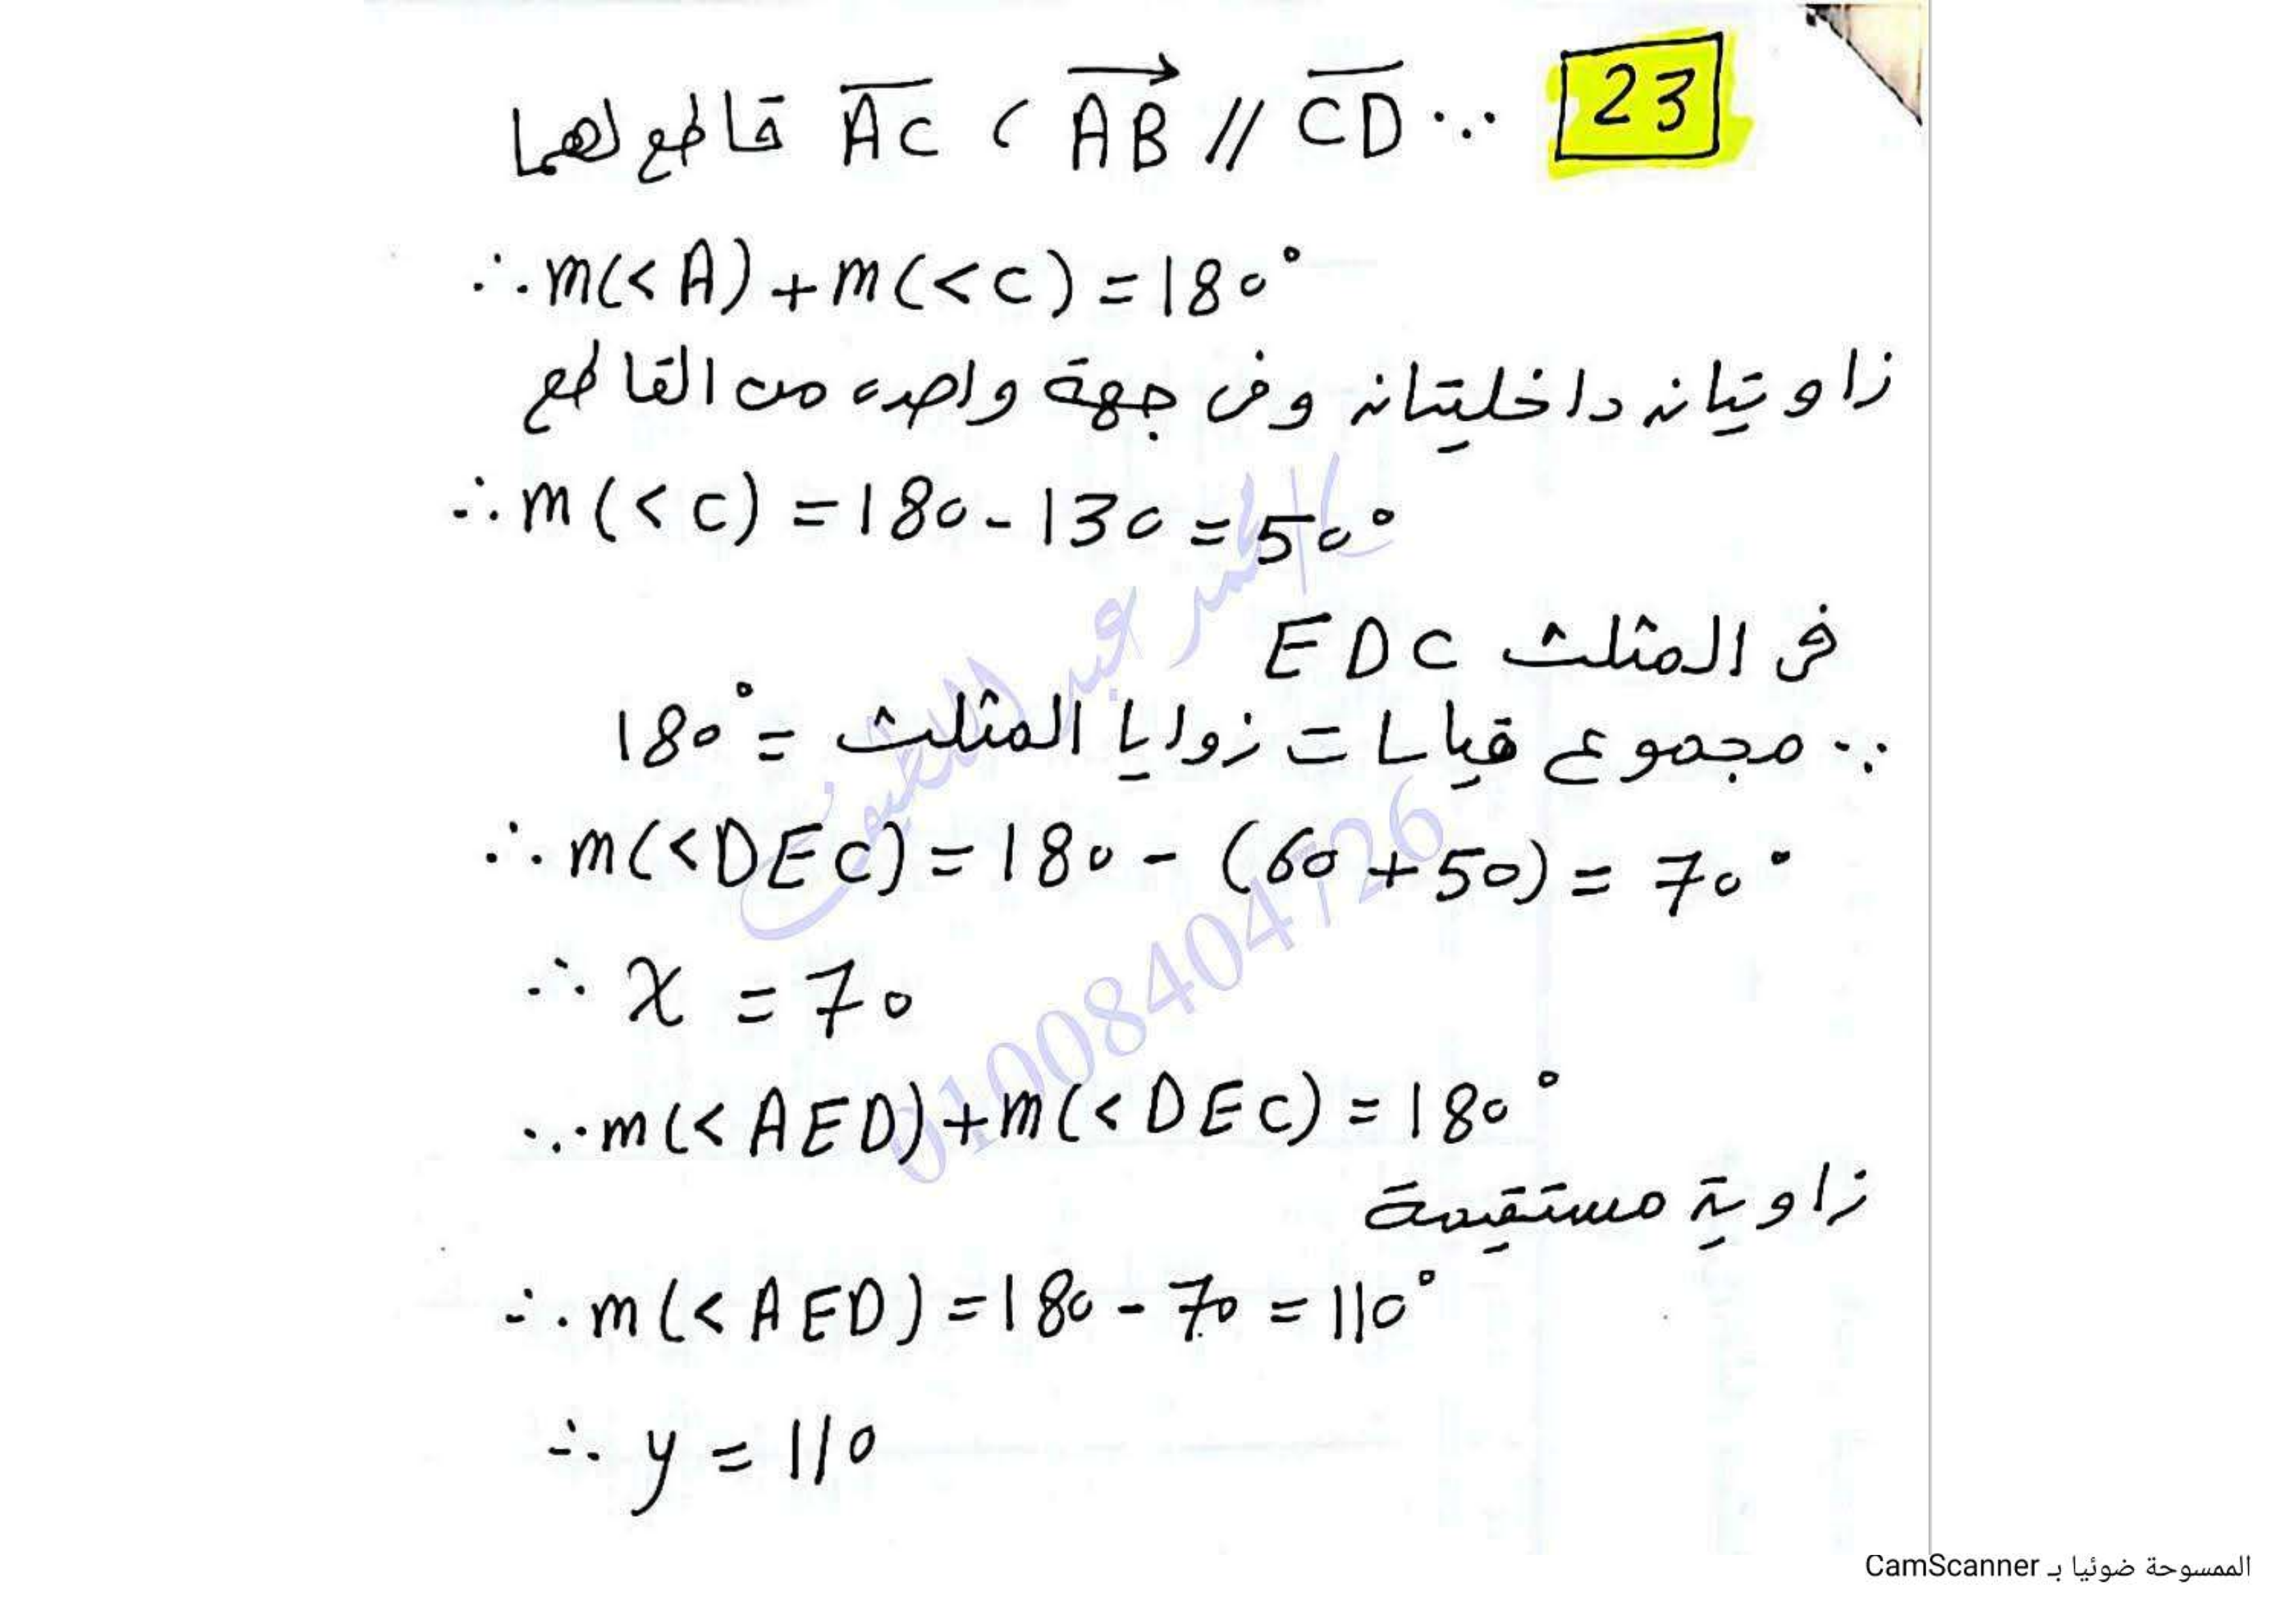 23 ∵ $\overline{CD}$ // $\overrightarrow{AB}$ ، $\overline{AC}$ قاطع لهما
∴ m(<A) + m(<C) = 180°
زاويتان داخليتان وفى جهة واحده من القاطع
∴ m(<C) = 180 - 130 = 50°
فى المثلث EDC
∵ مجموع قياسات زوايا المثلث = 180°
∴ m(<DEC) = 180 - (60 + 50) = 70°
∴ x = 70
∵ m(<AED) + m(<DEC) = 180°
زاوية مستقيمة
∴ m(<AED) = 180 - 70 = 110°
∴ y = 110
01008404726
الممسوحة ضوئيا بـ CamScanner